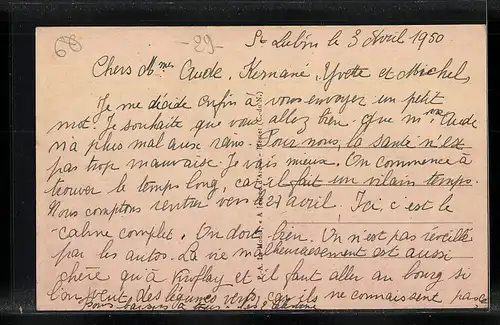 68
-29-
St Lubin le 3 Avril 1950
Chers Mmes Aude, Germané, Yvette et Michel,
Je me décide enfin à vous envoyer un petit
mot. Je souhaite que vous allez bien. Que Mme Aude
n'a plus mal aux reins. Pour nous, la santé n'est
pas trop mauvaise. Je vais mieux. On commence à
trouver le temps long, car il fait un vilain temps.
Nous comptons rentrer vers le 27 avril. Ici, c'est le
calme complet. On dort bien. On n'est pas réveillé
par les autos. La vie malheureusement est aussi
chère qu'à Viroflay et il faut aller au bourg si
l'on veut des légumes verts car ils ne connaissent pas
Bons baisers à tous.